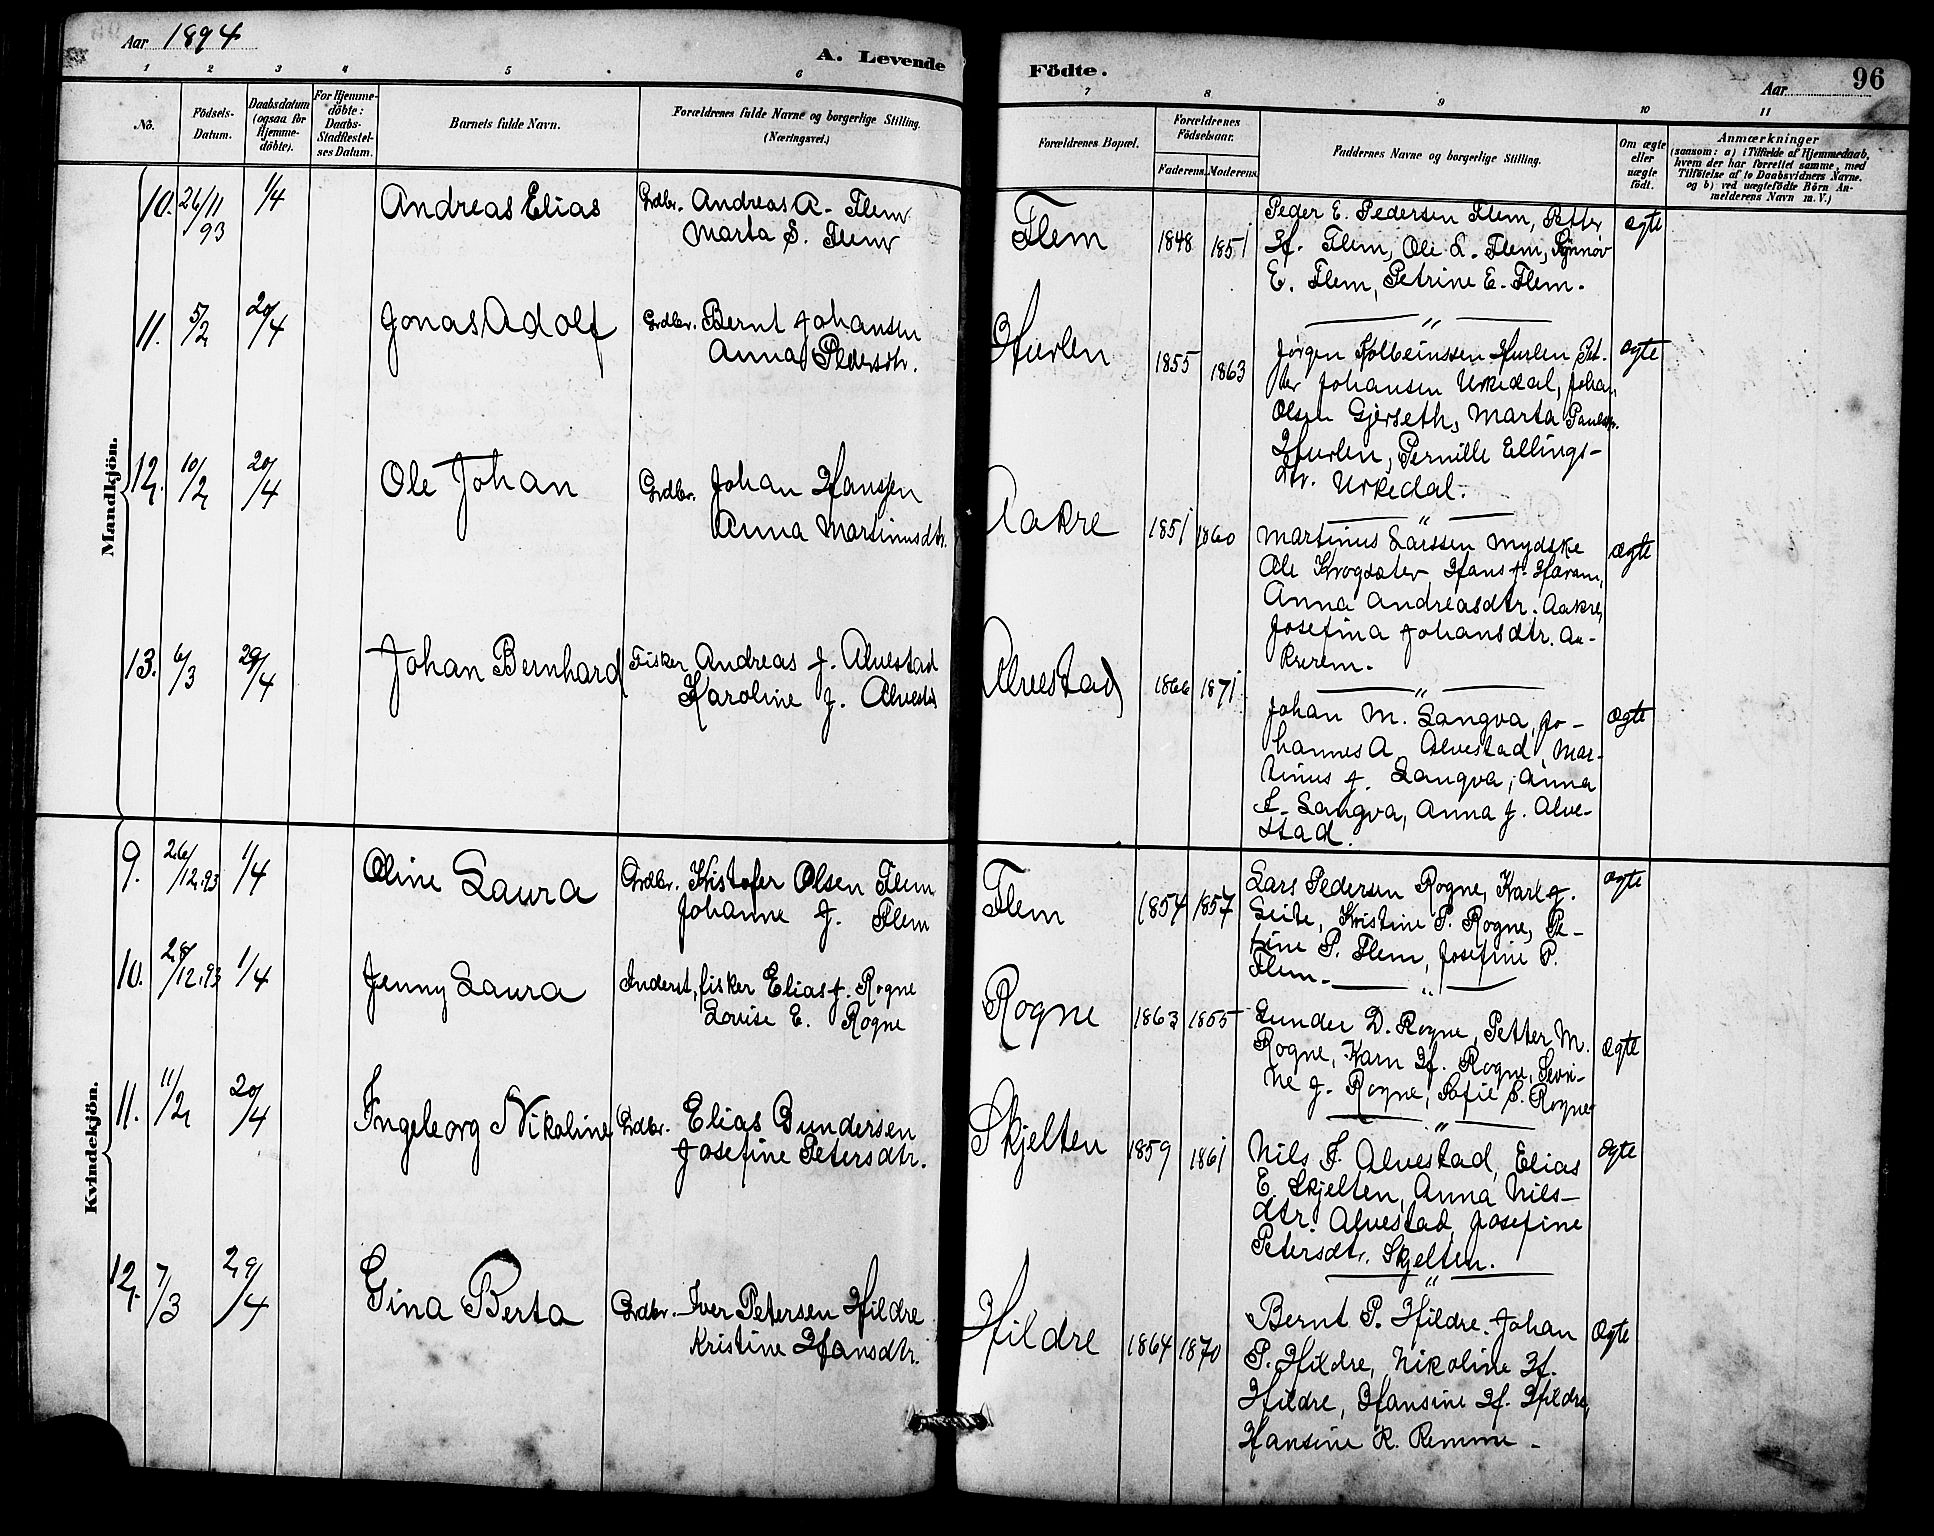 Aar 1894
A. Levende
Födte.
Aar
96
1 2 3 4 5 6
7 8 9 10 11
No.
Födsels-
Datum.
Daabsdatum
(ogsaa for
Hjemme-
döbte).
For Hjemme-
döbte:
Daabs-
Stadfæstel-
ses Datum.
Barnets fulde Navn.
Forældrenes fulde Navne og borgerlige Stilling.
(Næringsvei.)
Forældrenes Bopæl.
Forældrenes
Födselsaar.
Faderens. Moderens.
Faddernes Navne og borgerlige Stilling.
Om ægte
eller
uægte
födt.
Anmærkninger
(saasom: a) i Tilfælde af Hjemmedaab,
hvem der har forrettet samme, med
Tilföielse af to Daabsvidners Navne,
og b) ved uægtefödte Börn An-
melderens Navn m. V.)
Mandkjön.
10. 26/11 93 1/4 Andreas Elias Grdbr. Andreas A. Flem
Marta S. Flem
Flem 1848 1851
Peder E. Pedersen Flem, Petter
H. Flem, Ole L. Flem, Synnøv
E. Flem, Petrine E. Flem.
ægte
11. 5/2 20/4 Jonas Adolf Grdbr. Bernt Johansen
Anna Pedersdtr.
Hurlen 1855 1863
Jørgen Kolbeinssen Hurlen, Pet-
ter Johansen Urkedal, Johan
Olsen Gjerseth, Marta Paulsdtr.
Hurlen, Pernille Ellings-
dtr. Urkedal.
ægte
12. 10/2 20/4 Ole Johan Grdbr. Johan Hanssen
Anna Martinusdtr.
Aakre 1851 1860
Martinus Larssen Mydske
Ole Krogsæter, Hans J. Haram,
Anna Andreasdtr. Aakre,
Josefina Johansdtr. Aa-
krerem.
ægte
13. 6/3 29/4 Johan Bernhard Fisker Andreas J. Alvestad
Karoline J. Alvestad
Alvestad 1866 1871
Johan M. Langva, Jo-
hannes A. Alvestad, Mar-
tinus J. Langva, Anna
J. Langva, Anna J. Alve-
stad.
ægte
Kvindekjön.
9. 26/12.93 1/4 Oline Laura Grdbr. Kristofer Olsen Flem
Johanne J. Flem
Flem 1854 1857
Lars Pedersen Rogne, Karl J.
Leite, Kristine P. Rogne, Pe-
tine P. Flem, Josefine P.
Flem.
ægte
10. 28/12.93 1/4 Jenny Laura Inderst, fisker Elias J. Rogne
Lovise E. Rogne
Rogne 1863 1855
Gunder D. Rogne, Petter M.
Rogne, Karn H. Rogne, Sevri-
ne J. Rogne, Sofie S. Rogne
ægte
11. 11/2 20/4 Ingeborg Nikoline Grdbr. Elias Gundersen
Josefine Petersdtr.
Skjelten 1859 1861
Nils J. Alvestad, Elias
E. Skjelten, Anna Nils-
dtr. Alvestad, Josefine
Petersdtr. Skjelten.
ægte
12. 7/3 29/4 Gina Berta Grdbr. Iver Petersen Hildre
Kristine Hansdtr.
Hildre 1864 1870
Bernt P. Hildre. Johan
P. Hildre, Nikoline H.
Hildre, Hansine H. Hildre,
Hansine K. Remme.
ægte